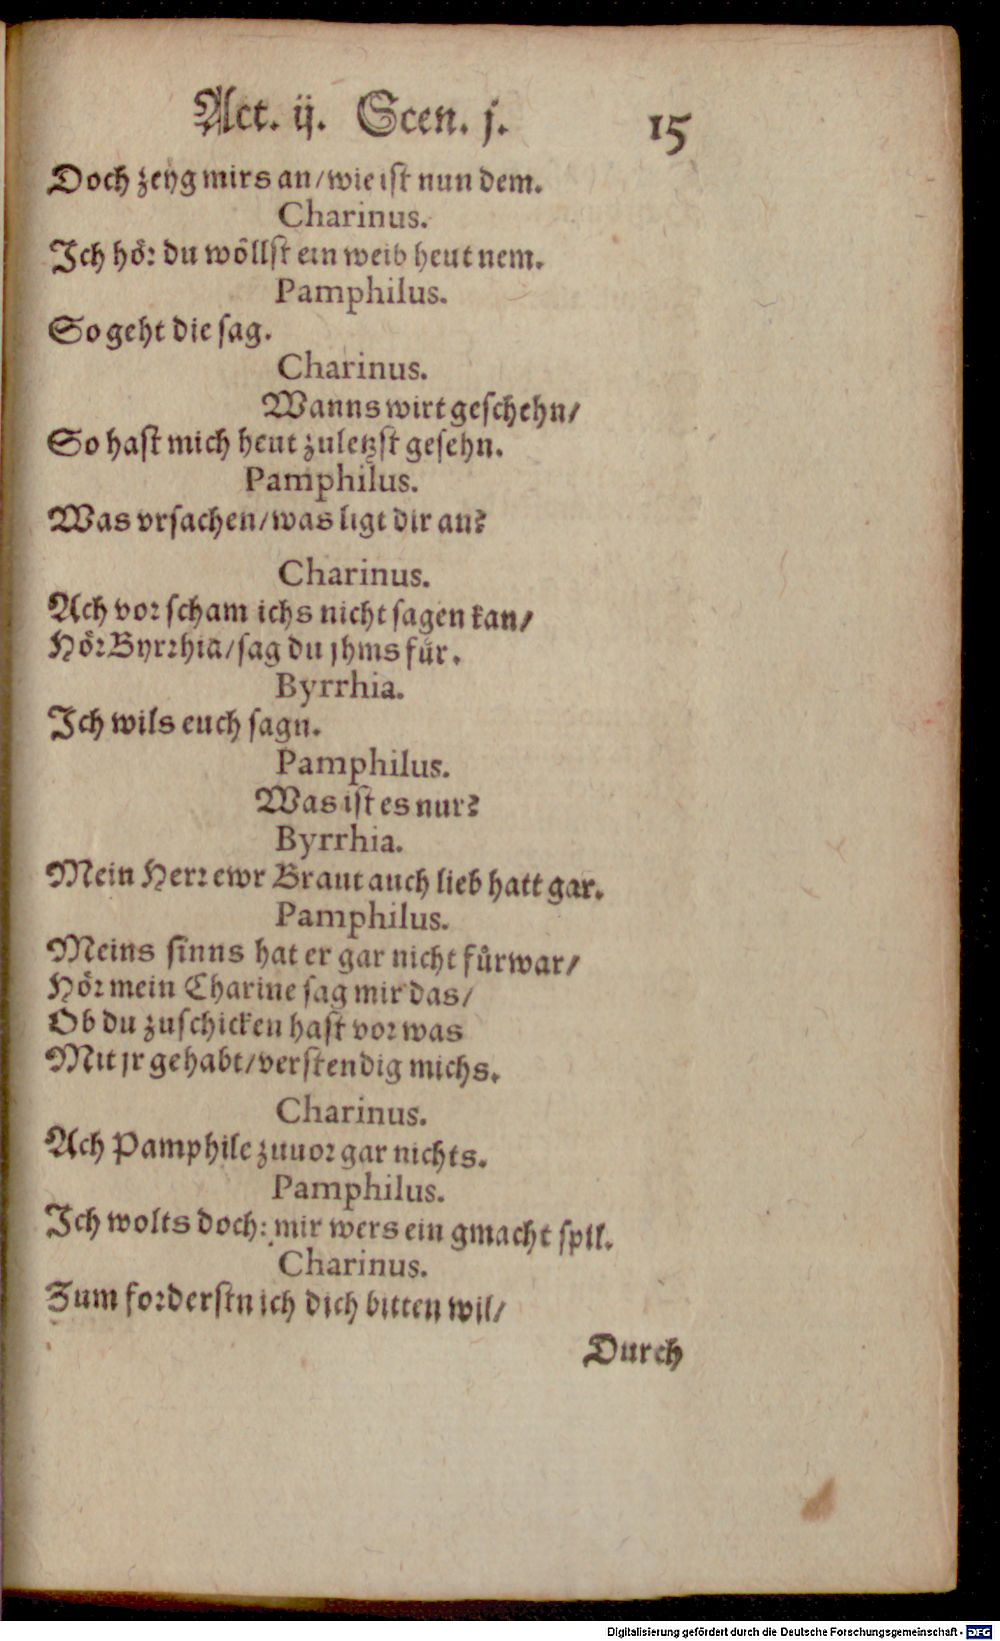 Act. ij. Scen. j. 15
Doch zeyg mirs an/wie ist nun dem.
Charinus.
Ich hör du wöllst ein weib heut nem.
Pamphilus.
So geht die sag.
Charinus.
Wanns wirt geschehn/
So hast mich heut zuletzst gesehn.
Pamphilus.
Was vrsachen/was ligt dir an?
Charinus.
Ach vor scham ichs nicht sagen kan/
Hör Byrrhia/sag du jhms für.
Byrrhia.
Ich wils euch sagn.
Pamphilus.
Was ist es nur?
Byrrhia.
Mein Herr ewr Braut auch lieb hatt gar.
Pamphilus.
Meins sinns hat er gar nicht fürwar/
Hör mein Charine sag mir das/
Ob du zuschicken hast vor was
Mit jr gehabt/verstendig michs.
Charinus.
Ach Pamphile zuuor gar nichts.
Pamphilus.
Ich wolts doch: mir wers ein gmacht spil.
Charinus.
Zum forderstn ich dich bitten wil/
Durch
Digitalisierung gefördert durch die Deutsche Forschungsgemeinschaft - DFG